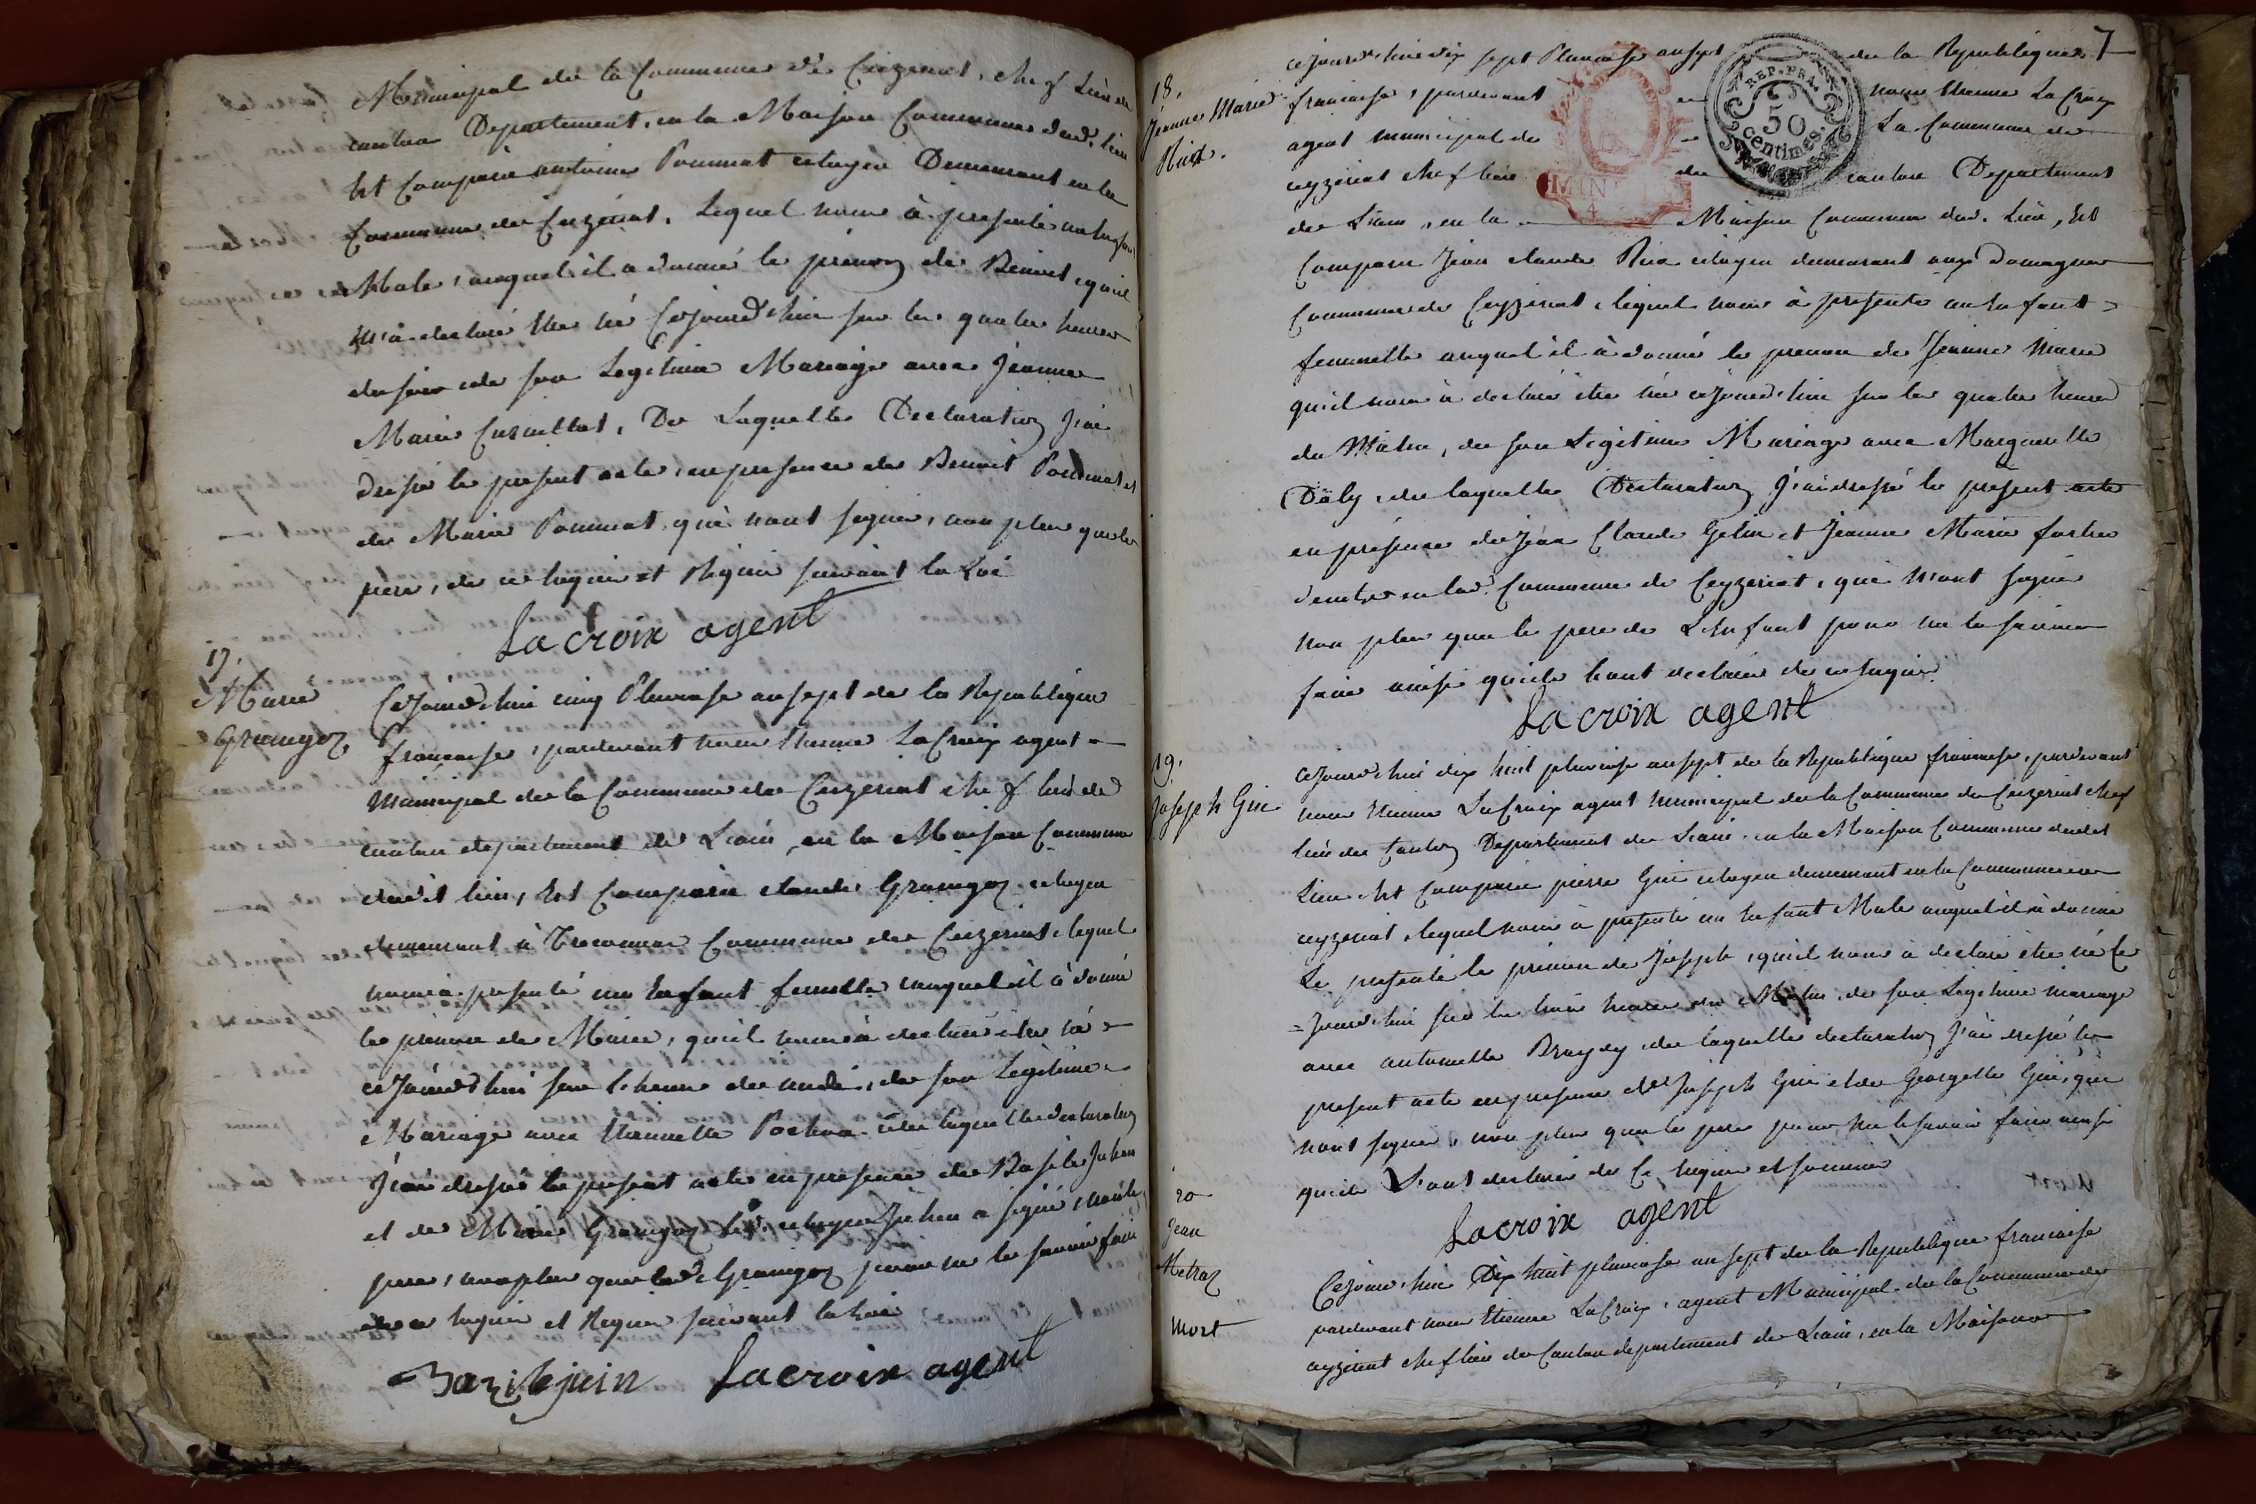 Municipal de la Commune de Ceyzeriat, chef Lieu de
canton Departement, en la Maison Commune dud. lieu
Est Comparu antoine Pommat citoyen Demeurant en la
Commune de Ceyzeriat, Lequel nous à presenté un Enfant
Male, auquel il a donné le prenom de Benoit, qu'il
m'a declaré Etre né Cejourd'hui sur les quatre heures
du soir de son Legitime Mariage avec Jeanne
Marie, De Laquelle Declaration J'ai
dressé le present acte, en presence de Benoit Pommat et
de Marie Pommat, qui n'ont signés, non plus que le
pere, de ce Enquis et Requis suivant la Loi
Lacroix agent
17.
Marie
Grangoz
Cejourd'hui cinq Pluviose an sept de la Republique
francaise, pardevant nous Etienne LaCroix agent
Municipal de la Commune de Ceyzeriat chef lieu de
canton departement de Lain, en la Maison Commune
dudit lieu, Est Comparu claude Grangoz citoyen
demeurant à Commune de Ceyzeriat, lequel
nous a presenté un Enfant femelle auquel il à donné
le prenom de Marie, qu'il nous à declaré être né
cejourd'hui sur l'heure de midi, de son Legitime
Mariage avec Etiennette Pochon de laquelle declaration
J'ai dressé le present acte en presence de Basile Juhen
et de Marie Grangoz led. citoyen Juhen a signé, non le
pere, non plus que lad. Grangoz pour ne le savoir faire
de ce Enquis et Requis suivant la Loi
Bazile juin Lacroix agent
7
18.
Jeanne Marie
Rica.
cejourd'hui dix sept Pluviose an sept de la Republique
francaise, pardevant nous Etienne LaCroix
agent municipal de La Commune de
ceyzeriat chef lieu de canton Departement
de Lain, en la Maison Commune dud. Lieu, Est
Comparu Jean claude Rica citoyen demeurant aux Domagnes
Commune de Ceyzeriat, lequel nous à presenté un Enfant
femmelle auquel il à donné le prenom de Jeanne Marie
qu'il nous à declaré être née cejourd'hui sur les quatre heures
du Matin, de son Legitime Mariage avec Marguerite
Daly, de laquelle Declaration J'ai dressé le present acte
en présence de Jean Claude Gelin et Jeanne Marie
demeurant en lad. Commune de Ceyzeriat, qui n'ont signé
non plus que le pere de L'Enfant pour ne le savoir
faire ainsi qu'ils l'ont declaré de ce Enquis
Lacroix agent
REP. FRA.
50
Centimes.
19.
Joseph Gui
cejourd'hui dix huit pluviose an sept de la Republique francaise, pardevant
nous Etienne LaCroix agent municipal de la Commune de Ceyzeriat chef
lieu de Canton Departement de Lain, en la Maison Commune dudit
Lieu Est Comparu pierre Gui citoyen demeurant en la Commune de
ceyzeriat, lequel nous à presenté un Enfant Male auquel il à donné
Le presenté le prenom de Joseph, qu'il nous à declaré être né Ce
= jourd'hui sur les huit heures du Matin, de son Legitime mariage
avec antoinette de laquelle declaration J'ai dressé le
present acte en presence de Joseph Gui et de Georgette Gui, qui
n'ont signés, non plus que le pere pour ne le savoir faire ainsi
qu'ils L'ont declaré de Ce Enquis et sommé
Lacroix agent
20
Jean
Metraz
Mort
Cejourd'hui Dix huit pluviose an sept de la Republique francaise
pardevant nous Etienne LaCroix, agent Municipal de la Commune de
ceyzeriat chef lieu de Canton departement de Lain, en la Maison